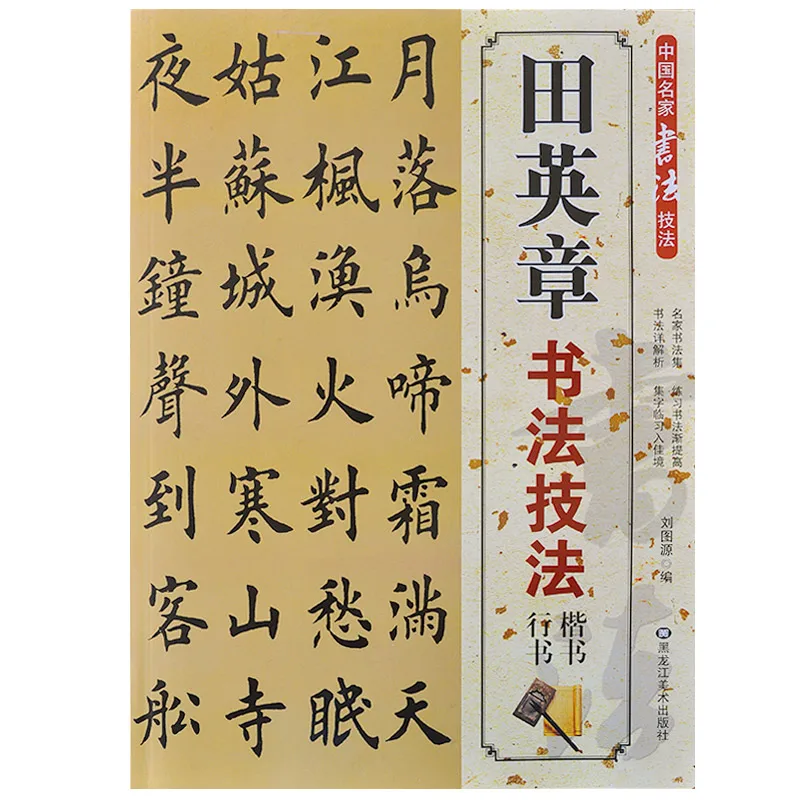 月落烏啼霜滿天
江楓漁火對愁眠
姑蘇城外寒山寺
夜半鐘聲到客船
田英章
书法技法
楷书
行书
中国名家书法技法
名家书法集 练习书法渐提高
书法详解析 集字临习入佳境
刘图源 编
黑龙江美术出版社